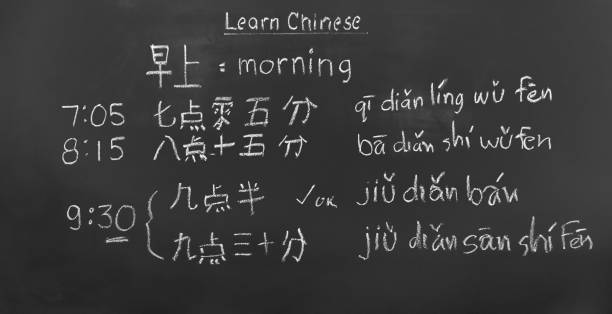 Learn Chinese
早上 : morning
7:05 七点零五分 qī diǎn líng wǔ fēn
8:15 八点十五分 bā diǎn shí wǔ fēn
9:30 { 九点半 ✓OK jiǔ diǎn bán
九点三十分 jiǔ diǎn sān shí fēn